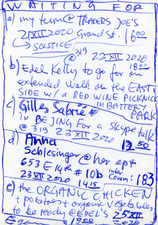 WAITING FOR
a) my turn @ TRADERS JOE'S
21 XII 2020 Grand St. 1600
SOLSTICE
@ 319 22 XII 2020
b) Edel Kelly to go for an 1500
extended walk on the EAST
SIDE w/ a RED WINE PICKNICK
in BATTERY PARK
c) Gilles Sabrié #
in BEJING for a Skype talk
@ 319 23 XII 2020
d) Anna 1250
Schlesinger @ her apt
653 E 14 R # 10b : 183
23 XII 2020 1415
e) the ORGANIC CHICKEN
+ potatoes + organic vegetables
to be ready @ EDEL'S 25 XII
2020